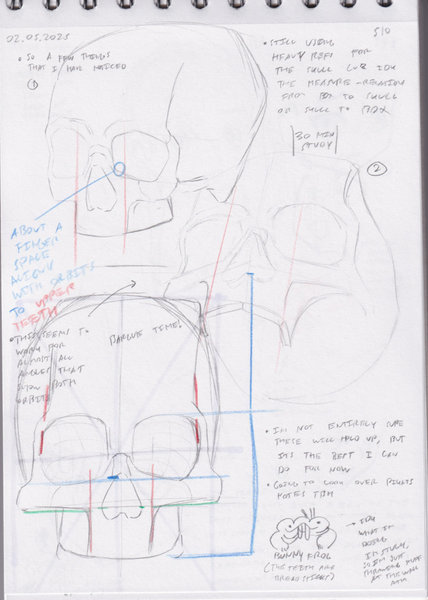 02.05.2025
5/0
• SO A FEW THINGS
THAT I HAVE NOTICED
①
• STILL USING
HEAVY REFS FOR
THE SKULL CUZ IDK
THE MEASURE-RELATION
FROM BOX TO SKULL
OR SKULL TO BOX
30 MIN
STUDY
②
ABOUT A
FINGER
SPACE
ALIGNS
WITH ORBITS
TO UPPER
TEETH
• THIS SEEMS TO
WORK FOR
ALMOST ALL
ANGLES THAT
SHOW BOTH
ORBITS
TIME!
• I'M NOT ENTIRELY SURE
THESE WILL HOLD UP, BUT
ITS THE BEST I CAN
DO FOR NOW
• GOING TO LOOK OVER
NOTES TBH
BUNNY FROG
(THE TEETH ARE
BREADSTICKS)
→ IDK
WHAT IM
DOING
IM STUCK,
SO IM JUST
THROWING
AT THE WALL
ATM